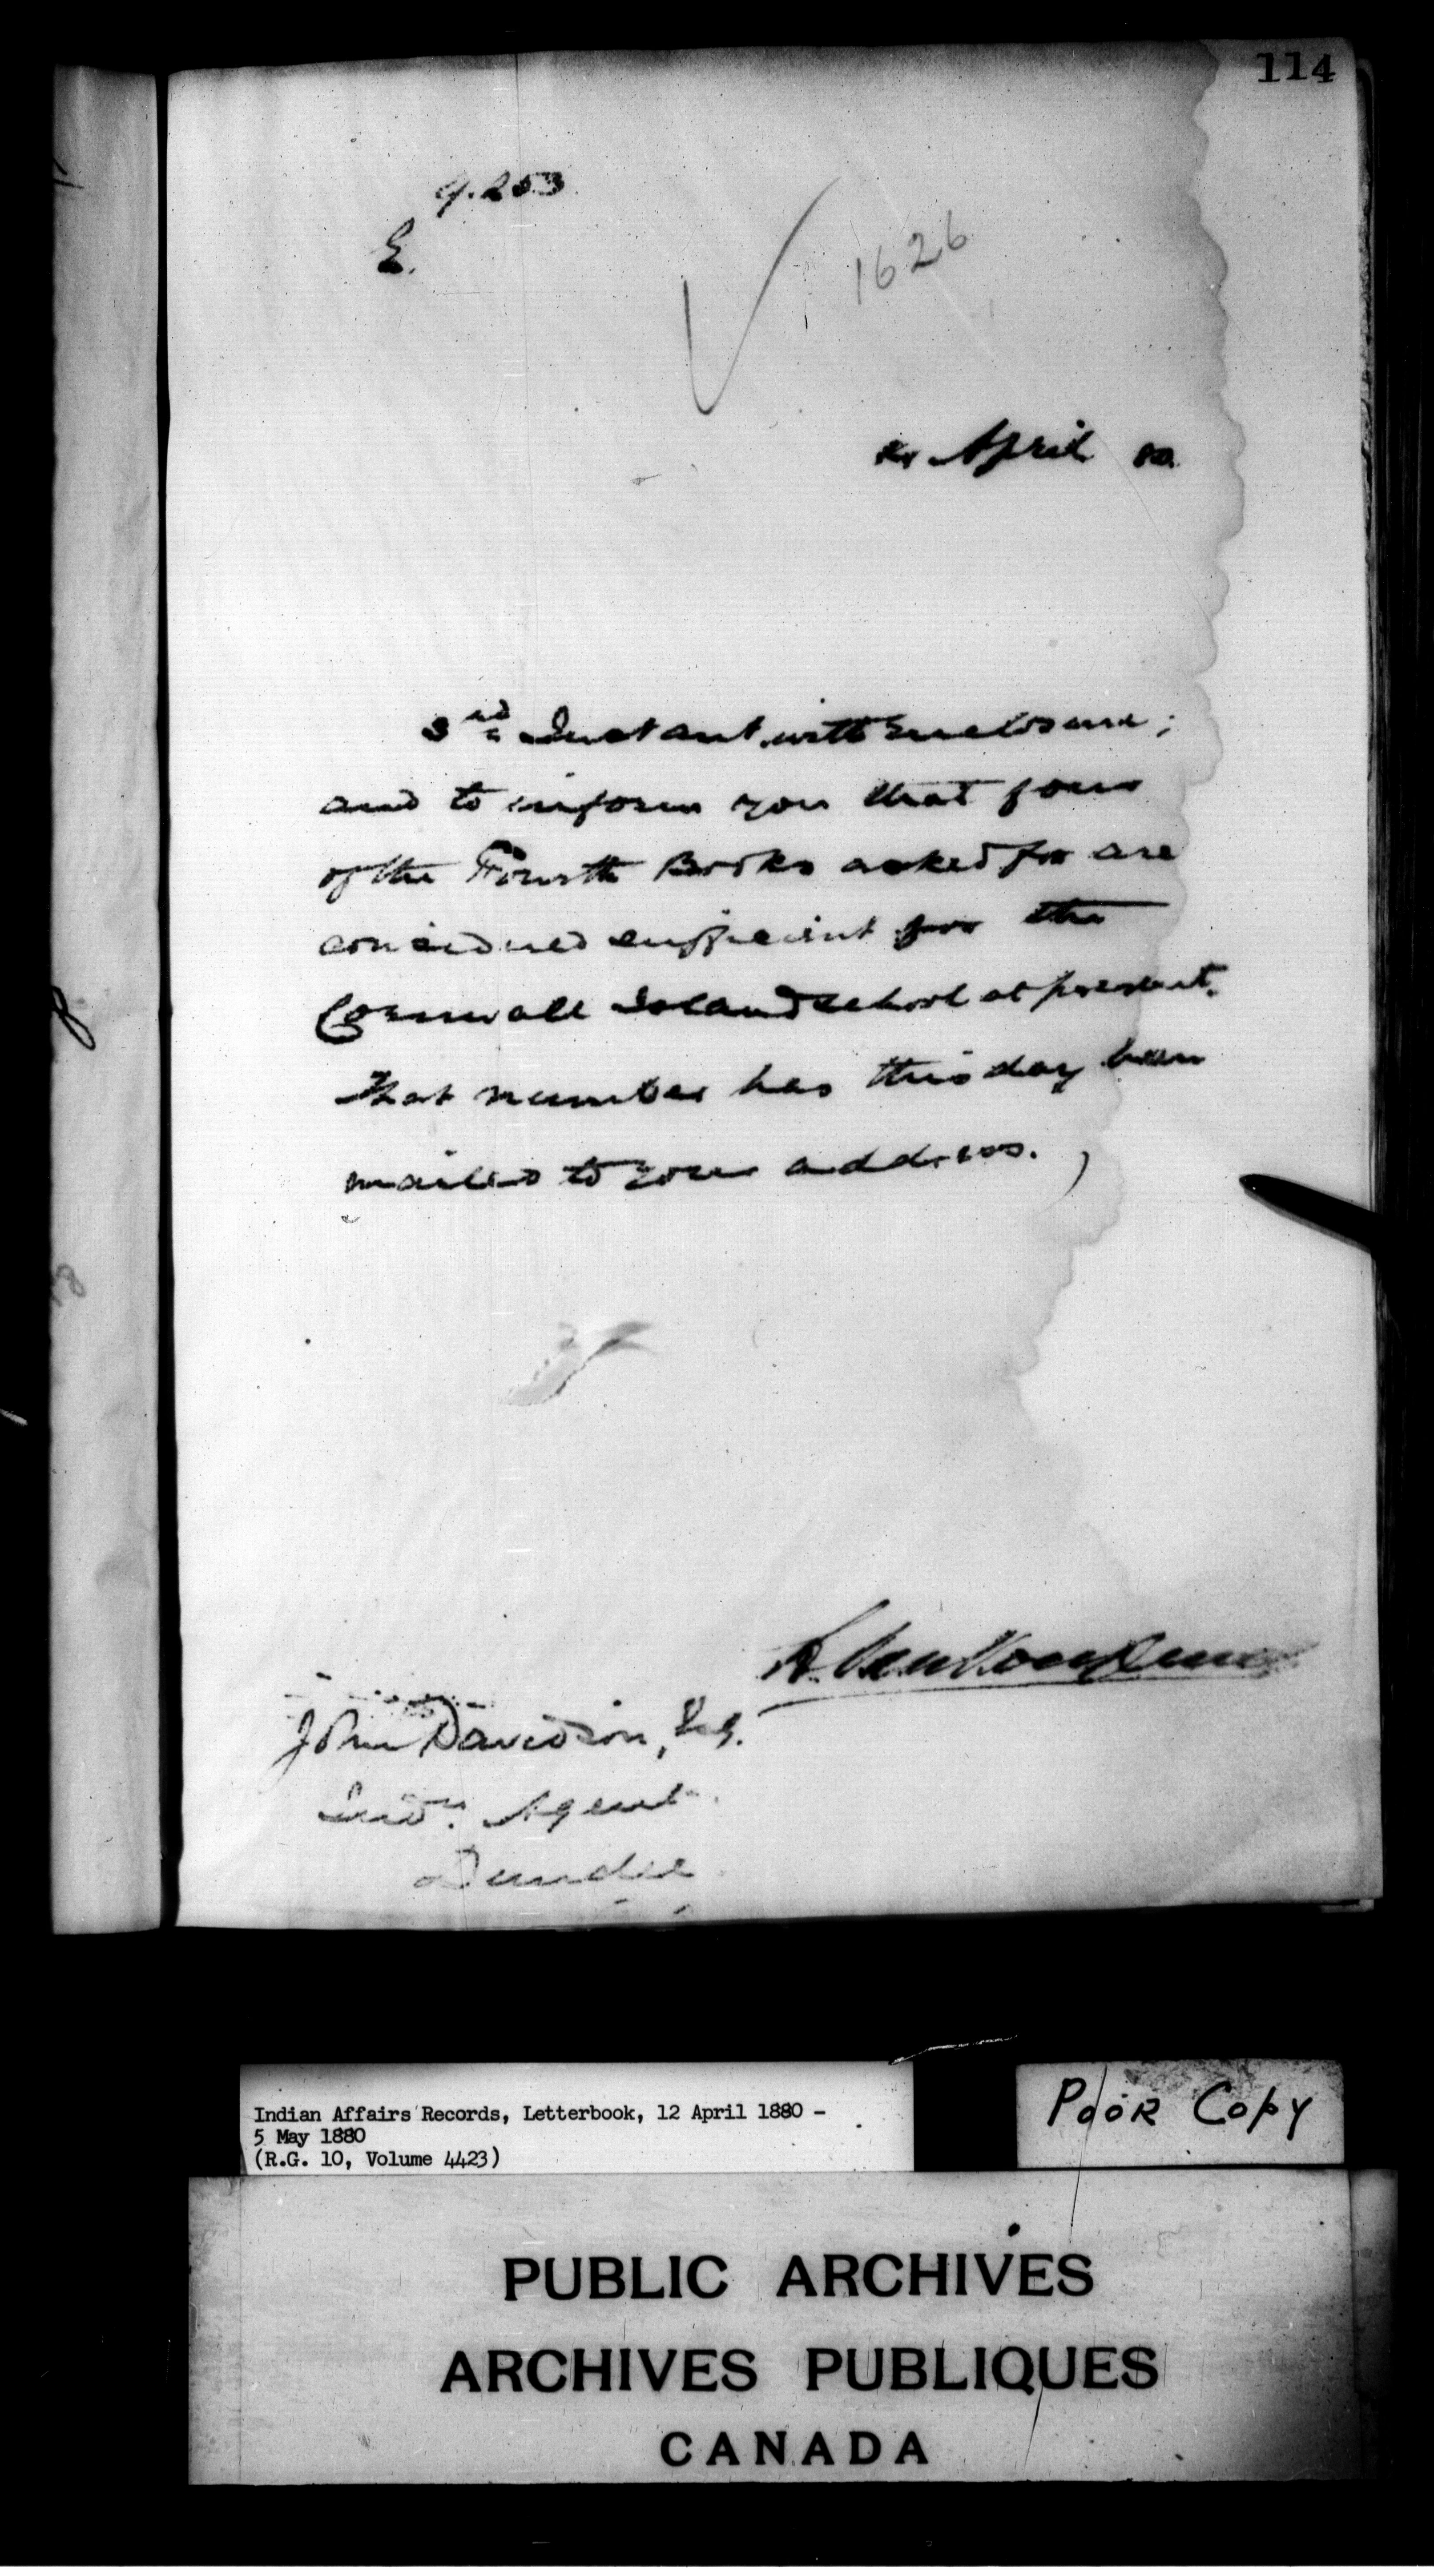 114
9.253
E.
1626
April 80.
3rd Instant, with Enclosure;
and to inform you that four
of the Fourth Books asked for are
considered sufficient for the
Cornwall Island School at present.
That number has this day been
mailed to your address.
John Davidson, Esq.
Indn. Agent
Dundee
Indian Affairs Records, Letterbook, 12 April 1880 -
5 May 1880
(R.G. 10, Volume 4423)
Poor Copy
PUBLIC ARCHIVES
ARCHIVES PUBLIQUES
CANADA